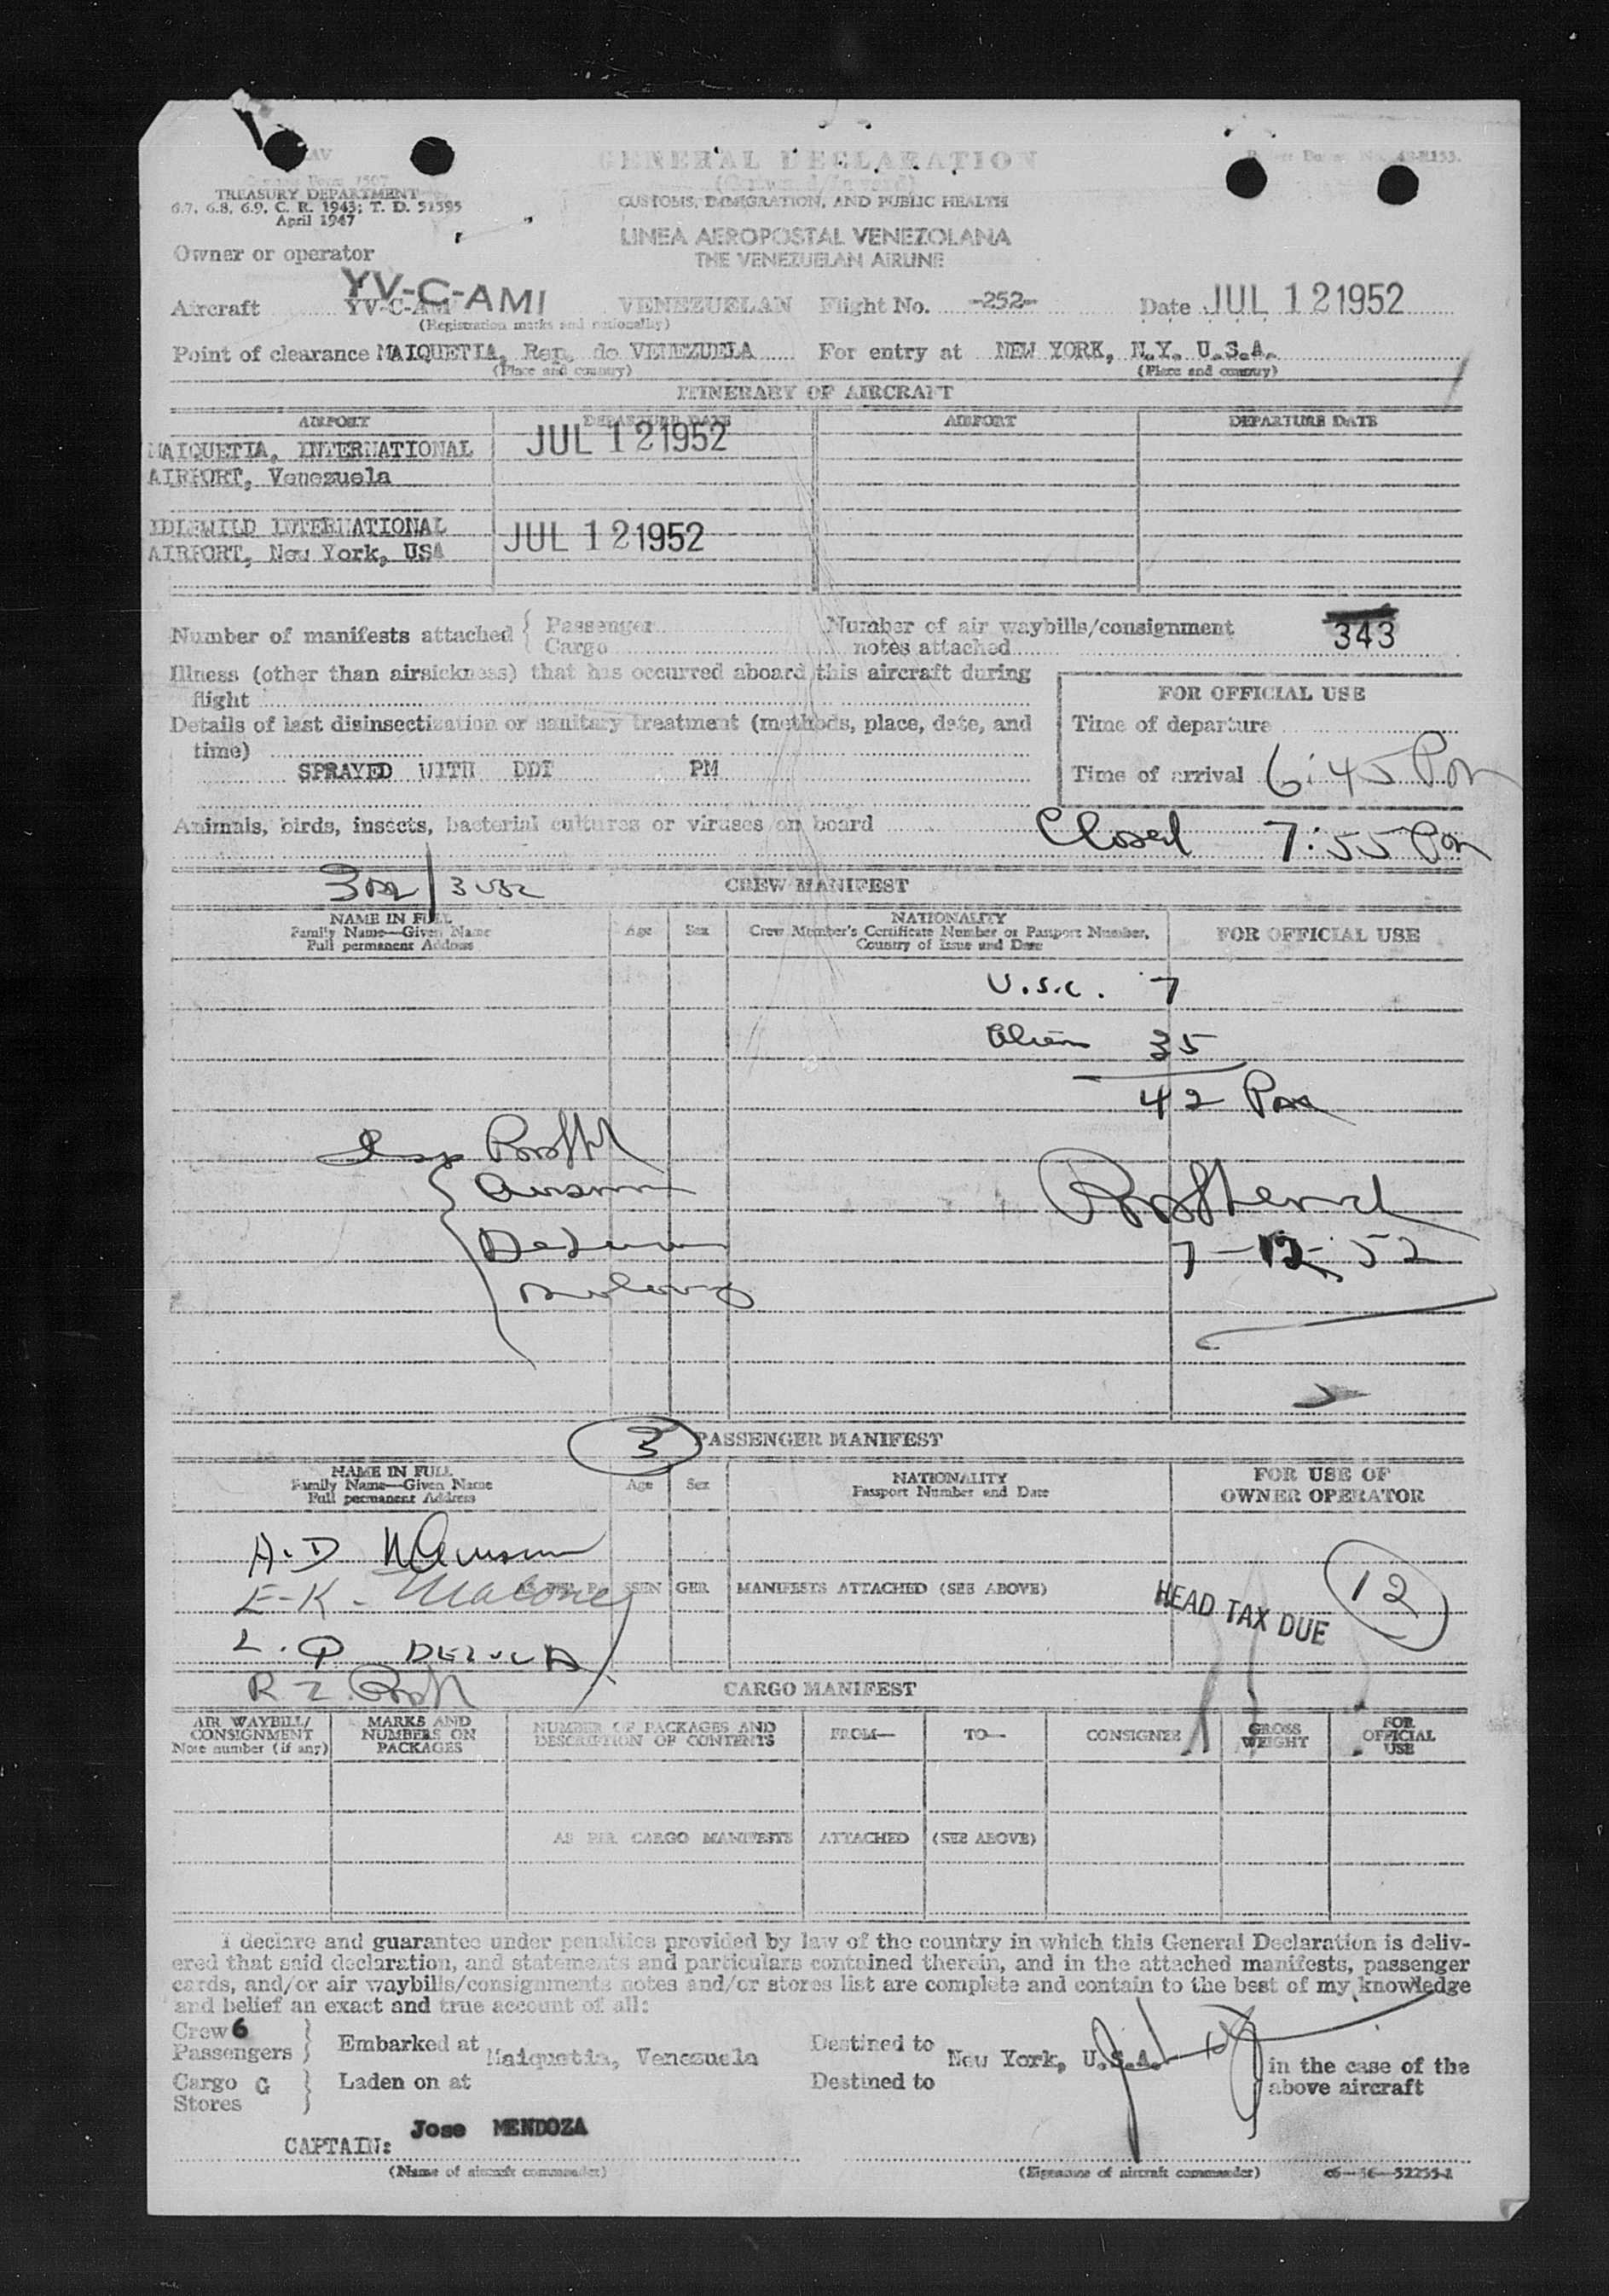 GENERAL DECLARATION
TREASURY DEPARTMENT
6.7, 6.8, 6.9, C. R. 1943; T. D. 51595
April 1947
CUSTOMS, IMMIGRATION, AND PUBLIC HEALTH
LINEA AEROPOSTAL VENEZOLANA
THE VENEZUELAN AIRLINE
Owner or operator
YV-C-AMI
Aircraft YV-C-AM VENEZUELAN Flight No. -252- Date JUL 12 1952
(Registration marks and nationality)
Point of clearance MAIQUETIA, Rep. de VENEZUELA For entry at NEW YORK, N.Y. U.S.A.
(Place and country) (Place and country)
ITINERARY OF AIRCRAFT
AIRPORT DEPARTURE DATE AIRPORT DEPARTURE DATE
MAIQUETIA, INTERNATIONAL JUL 12 1952
AIRPORT, Venezuela
IDLEWILD INTERNATIONAL JUL 12 1952
AIRPORT, New York, USA
Number of manifests attached { Passenger Number of air waybills/consignment 343
Cargo notes attached
Illness (other than airsickness) that has occurred aboard this aircraft during
flight
FOR OFFICIAL USE
Details of last disinsectization or sanitary treatment (methods, place, date, and
time)
Time of departure
SPRAYED WITH DDT PM
Time of arrival 6:45 Pm
Animals, birds, insects, bacterial cultures or viruses on board
Closed 7:55 Pm
CREW MANIFEST
NAME IN FULL
Family Name—Given Name
Full permanent Address
Age Sex
NATIONALITY
Crew Member's Certificate Number or Passport Number,
Country of Issue and Date
FOR OFFICIAL USE
U.S.C. 7
Alien 35
42 Pax
7-12-52
3 PASSENGER MANIFEST
NAME IN FULL
Family Name—Given Name
Full permanent Address
Age Sex
NATIONALITY
Passport Number and Date
FOR USE OF
OWNER OPERATOR
A. D
E-K- Malone
AS PER PASSENGER MANIFESTS ATTACHED (SEE ABOVE)
HEAD TAX DUE 12
CARGO MANIFEST
AIR WAYBILL/
CONSIGNMENT
Note number (if any)
MARKS AND
NUMBERS ON
PACKAGES
NUMBER OF PACKAGES AND
DESCRIPTION OF CONTENTS
FROM—
TO—
CONSIGNEE
GROSS
WEIGHT
FOR
OFFICIAL
USE
AS PER CARGO MANIFESTS ATTACHED (SEE ABOVE)
I declare and guarantee under penalties provided by law of the country in which this General Declaration is deliv-
ered that said declaration, and statements and particulars contained therein, and in the attached manifests, passenger
cards, and/or air waybills/consignments notes and/or stores list are complete and contain to the best of my knowledge
and belief an exact and true account of all:
Crew 6
Passengers } Embarked at Maiquetia, Venezuela Destined to New York, U.S.A.
in the case of the
above aircraft
Cargo G
Stores } Laden on at Destined to
CAPTAIN: Jose MENDOZA
(Name of aircraft commander) (Signature of aircraft commander)